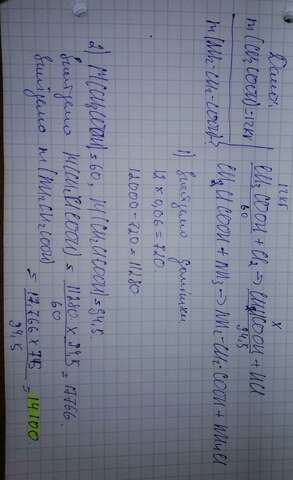 Дано:
m(CH₃COOH)=12кг
m(NH₂-CH₂-COOH)?
12кг x
CH₃COOH + Cl₂ → CH₂ClCOOH + HCl
60 94,5
CH₂ClCOOH + NH₃ → NH₂-CH₂-COOH + NH₄Cl
1) знайдемо домішки
12 x 0,06 = 720
12000-720 = 11280
2) M(CH₃COOH)=60, M(CH₂ClCOOH)=94.5
знайдемо M(CH₂ClCOOH) = 11280 x 94,5 / 60 = 17766.
знайдемо m(NH₂CH₂COOH) = 17766 x 75 / 94,5 = 14100